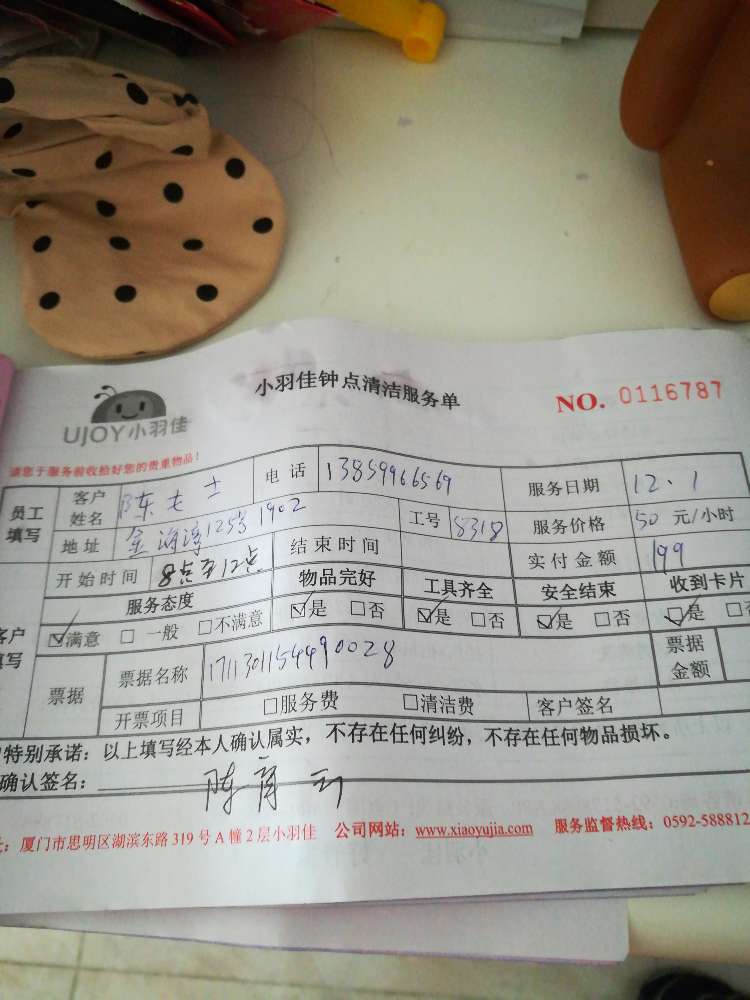 小羽佳钟点清洁服务单
NO. 0116787
UJOY小羽佳
请您于服务前收拾好您的贵重物品!
员工填写 客户姓名 陈女士 电话 13859966569 服务日期 12.1
地址 125号1902 工号 8318 服务价格 50 元/小时
开始时间 8点至12点 结束时间 实付金额 199
服务态度 物品完好 工具齐全 安全结束 收到卡片
☑满意 □一般 □不满意 ☑是 □否 ☑是 □否 ☑是 □否 ☑是 □否
客户填写
票据 票据名称 171130115449 0028 票据金额
开票项目 □服务费 □清洁费 客户签名
特别承诺:以上填写经本人确认属实,不存在任何纠纷,不存在任何物品损坏。
确认签名:陈
厦门市思明区湖滨东路319号A幢2层小羽佳 公司网站:www.xiaoyujia.com 服务监督热线:0592-588812